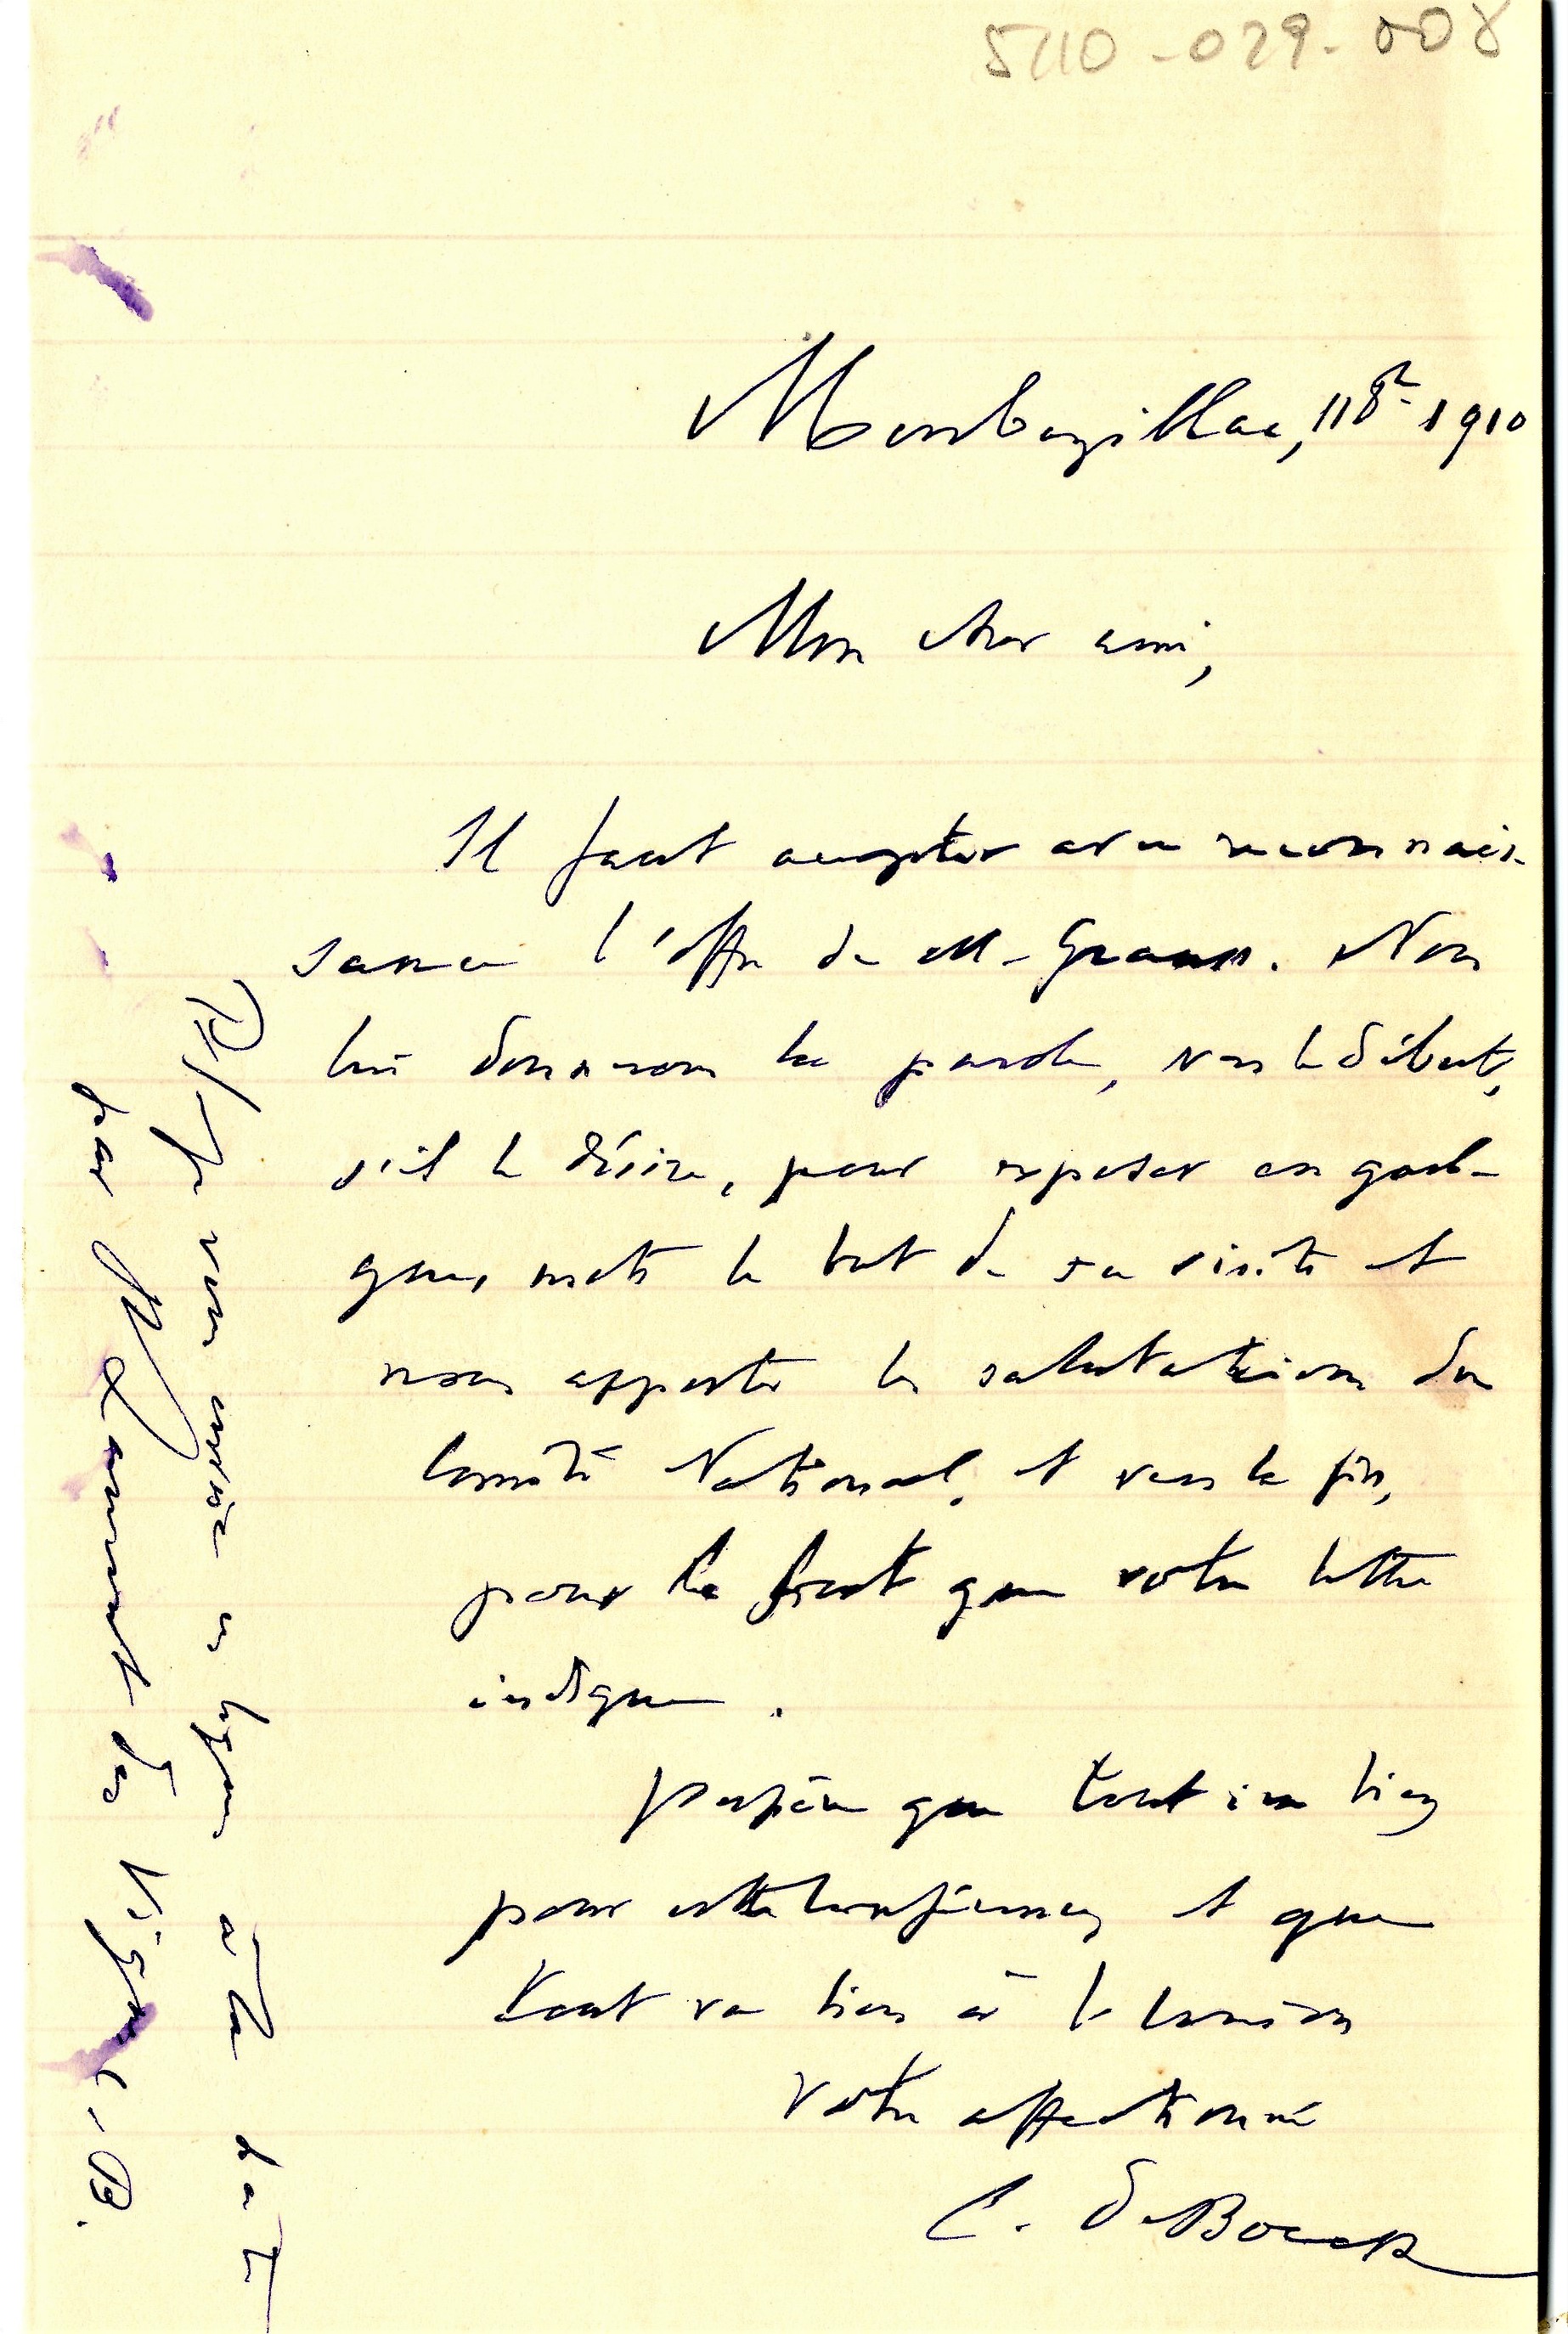 5110-029-008
Monbazillac, 11 8bre 1910
Mon cher ami,
Il faut accepter avec reconnais-
sance l'offre de M. Grauss. Nous
lui donnerons la parole, vers le début,
s'il le désire, pour exposer en quel-
ques mots le but de sa visite et
nous apporter les salutations du
Comité National, et vers la fin,
pour le but que votre lettre
indique.
J'espère que tout ira bien
pour cette conférence, et que
tout va bien à la maison
Votre affectionné
C. de Boeck
P.S. Je vous
à la
par